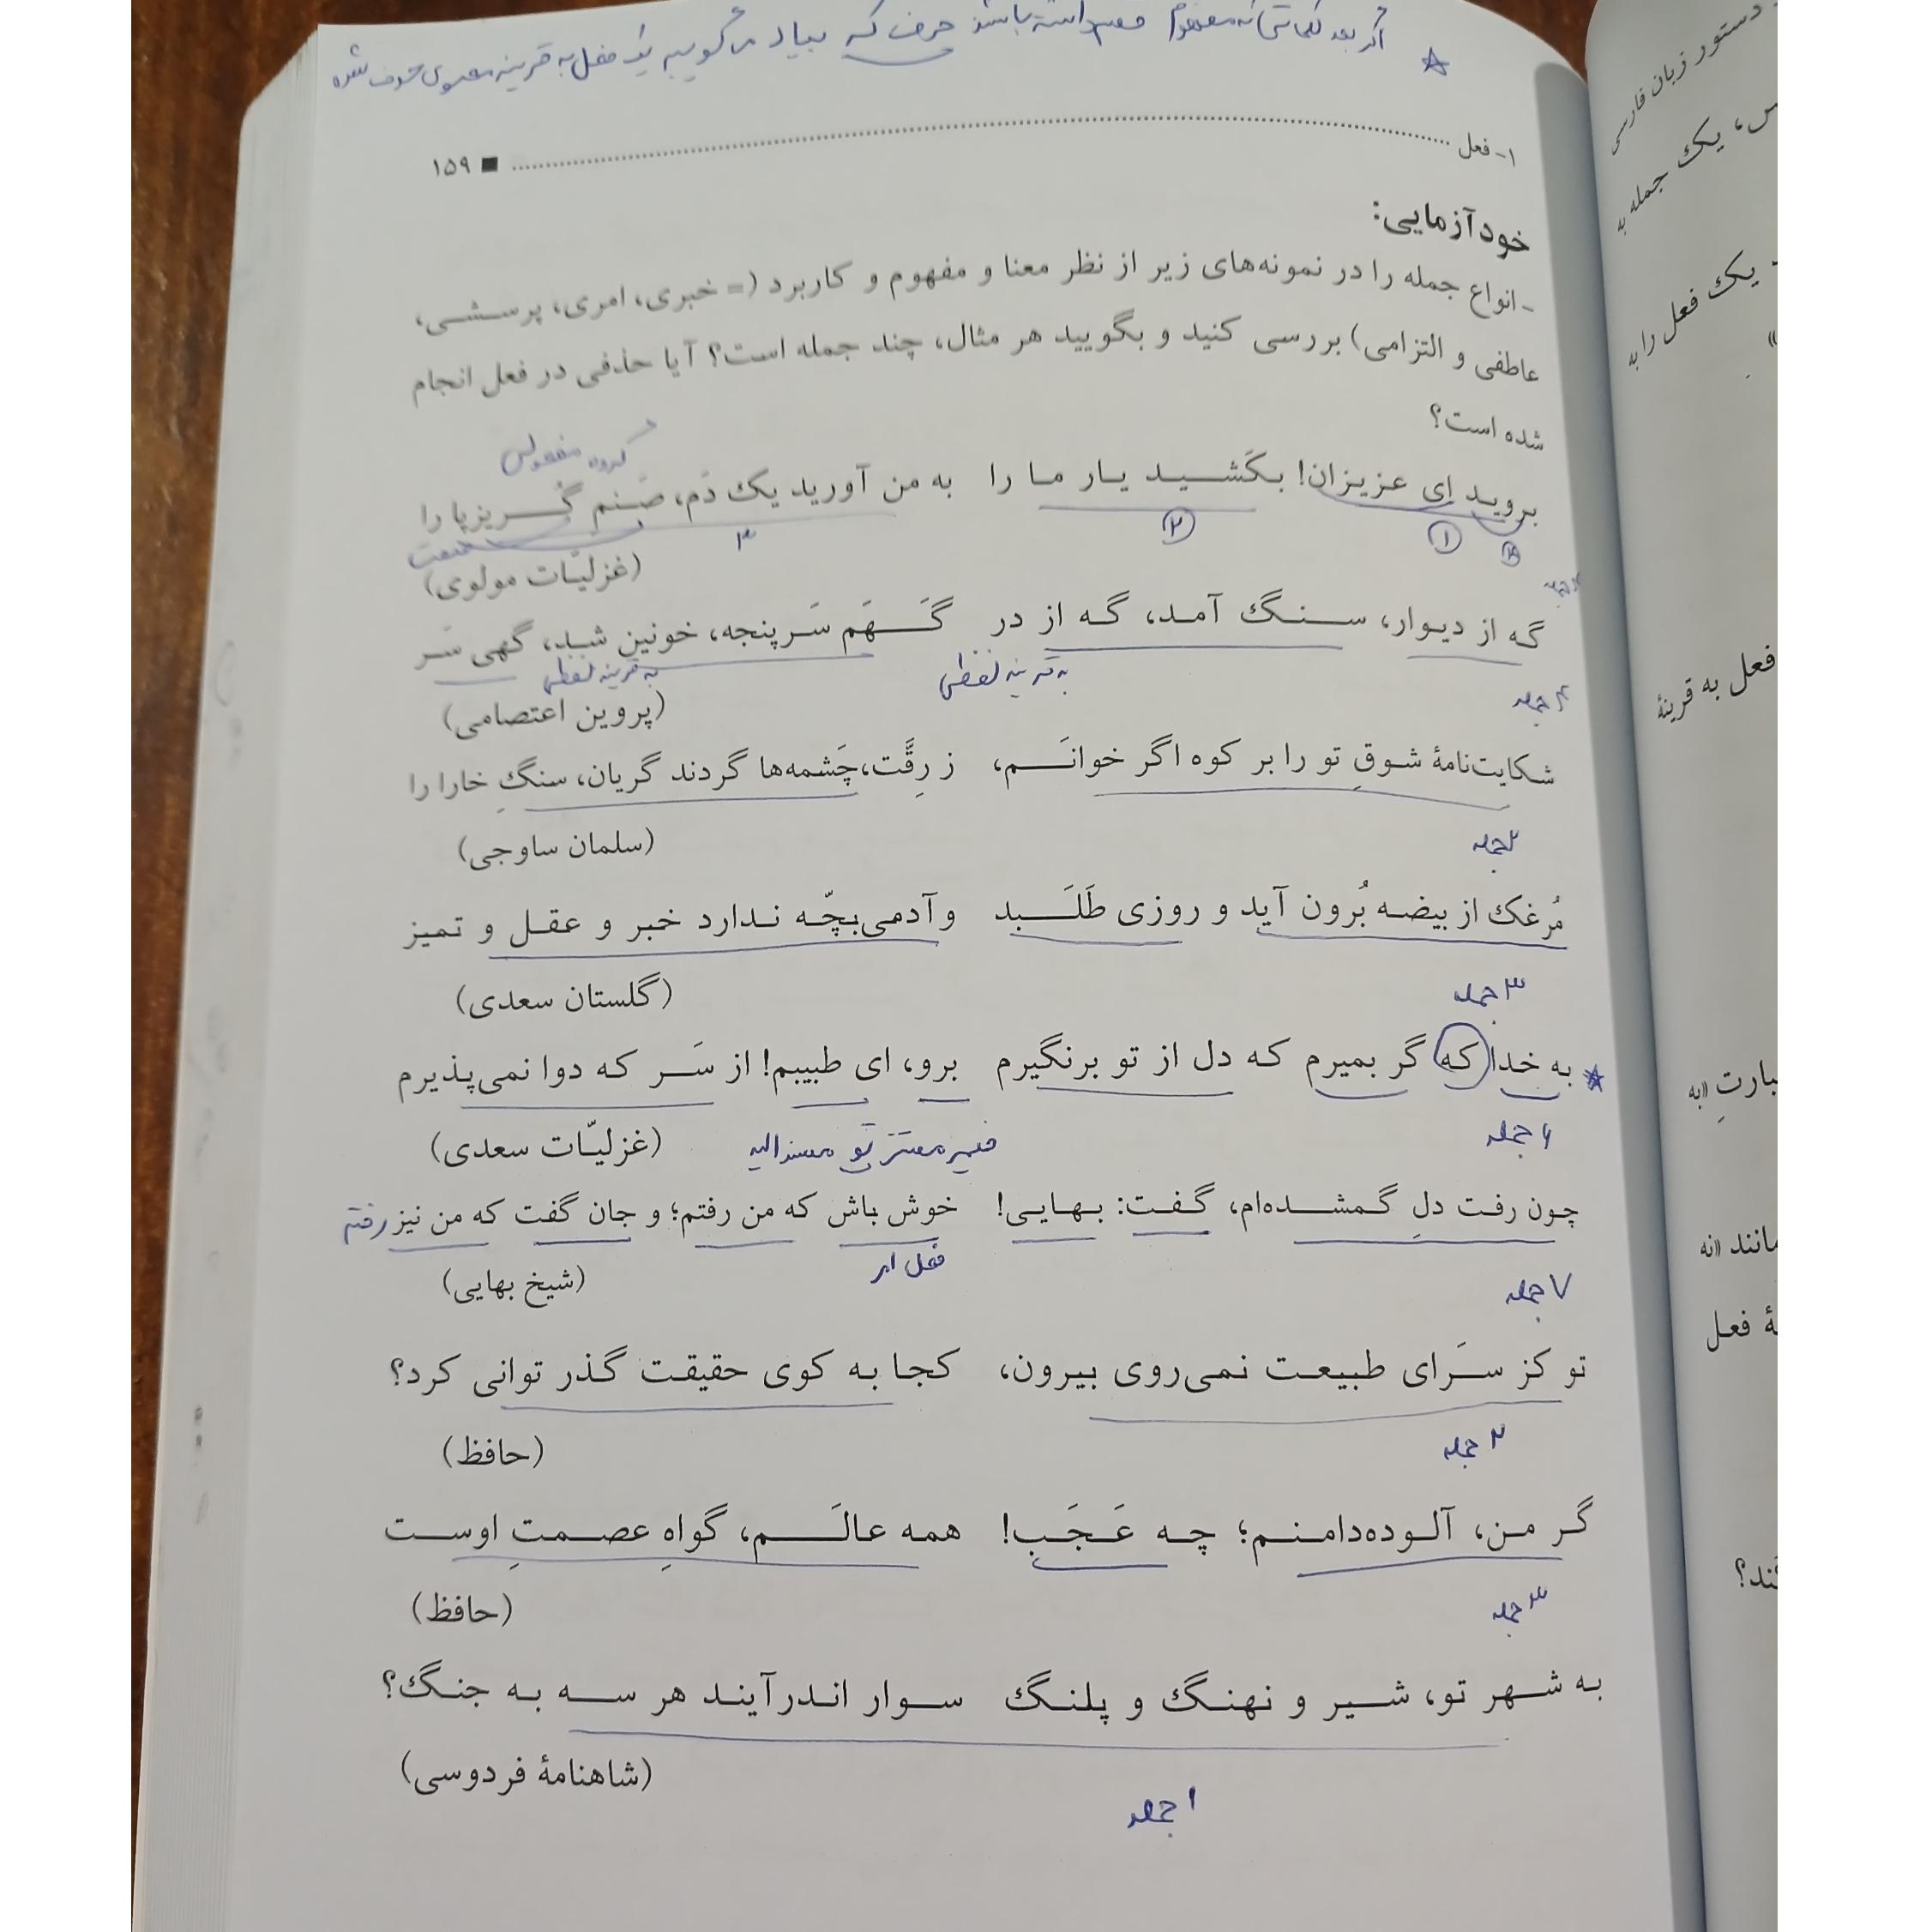 ☆ اگر بعد کلماتی که مفهوم قسم داشته باشد حرف که بیاد می‌گوییم یک فعل به قرینه معنوی حذف شده
۱- فعل ■ ۱۵۹
خودآزمایی:
ـ انواع جمله را در نمونه‌های زیر از نظر معنا و مفهوم و کاربرد (= خبری، امری، پرسشی،
عاطفی و التزامی) بررسی کنید و بگویید هر مثال، چند جمله است؟ آیا حذفی در فعل انجام
شده است؟
گروه مفعولی
بروید ای عزیزان! بکَشید یار ما را به من آورید یک دَم، صَنم گُریزپا را
۱ ۲ ۳
صفت
(غزلیّات مولوی)
گه از دیوار، سنگ آمد، گه از در گَهَم سَرپنجه، خونین شد، گهی سَر
به قرینه لفظی به قرینه لفظی
۴ جمله (پروین اعتصامی)
شکایت‌نامهٔ شوقِ تو را بر کوه اگر خوانَم، ز رِقَّت، چَشمه‌ها گردند گریان، سنگِ خارا را
۲ جمله (سلمان ساوجی)
مُرغک از بیضه بُرون آید و روزی طَلَبد وآدمی‌بچّه ندارد خبر و عقل و تمیز
۳ جمله (گلستان سعدی)
☆ به خدا که گر بمیرم که دل از تو برنگیرم برو، ای طبیبم! از سَر که دوا نمی‌پذیرم
۶ جمله (غزلیّات سعدی)
ضمیر مستتر تو مسندالیه
چون رفت دلِ گمشده‌ام، گفت: بهایی! خوش باش که من رفتم؛ و جان گفت که من نیز رفتم
فعل امر
۷ جمله (شیخ بهایی)
تو کز سَرای طبیعت نمی‌روی بیرون، کجا به کوی حقیقت گذر توانی کرد؟
۲ جمله (حافظ)
گر من، آلوده‌دامنم؛ چه عَجَب! همه عالَم، گواهِ عصمتِ اوست
۳ جمله (حافظ)
به شهر تو، شیر و نهنگ و پلنگ سوار اندرآیند هر سه به جنگ؟
(شاهنامهٔ فردوسی)
۱ جمله
دستور زبان فارسی
یک جمله به
یک فعل را به
فعل به قرینهٔ
عبارتِ «به
مانند «نه
فعل